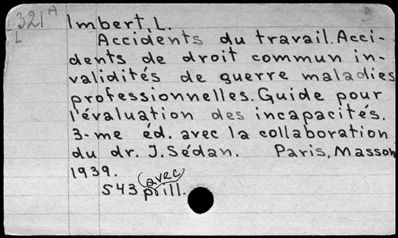 321 A Imbert, L.
L Accidents du travail. Acci-
dents de droit commun in-
validités de guerre maladies
professionnelles. Guide pour
l'évaluation des incapacités.
3-me éd. avec la collaboration
du dr. J. Sédan. Paris, Masson
1939.
(avec)
543 p ill.